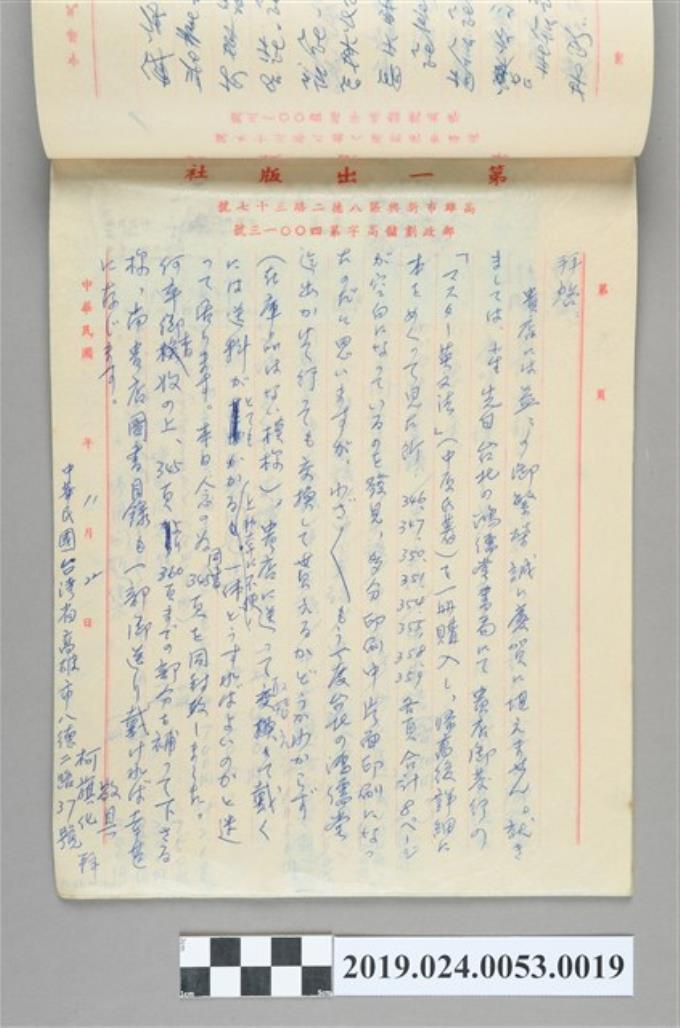 第一出版社
高雄市新興區八德二路三十七號
郵政劃儲高字第四〇〇一三號
第 頁
拜啓、
貴店には益々御繁榮誠に慶賀に堪えません。就き
ましては、小生先日台北の鴻儒堂書局にて貴店御發行の
「マスター英文法」(中原氏著)を一冊購入し、帰高後詳細に
本をめくって見た所、346、347、350、351、354、355、358、359各頁合計8ページ
が空白になっているのを發見、多分印刷中片面印刷になっ
たのだと思いますが、わざ〱もう一度台北の鴻儒堂
迄出かけて行っても交換して貰えるかどうかわからず
(在庫品はない模様)。貴店に送って交換して戴く
には送料がとてもかかるし、一体どうすればよいのかと迷
って居ります。本日念の為、同書345頁を同封致しました。
何卒御査收の上、345頁より360頁までの部分を補って下さる
様、尚貴店圖書目錄も一部御送り戴ければ幸甚
に存じます。
敬具
柯旗化 拜
中華民國 年 11月 21日
中華民國台湾省高雄市八德二路37號
2019.024.0053.0019